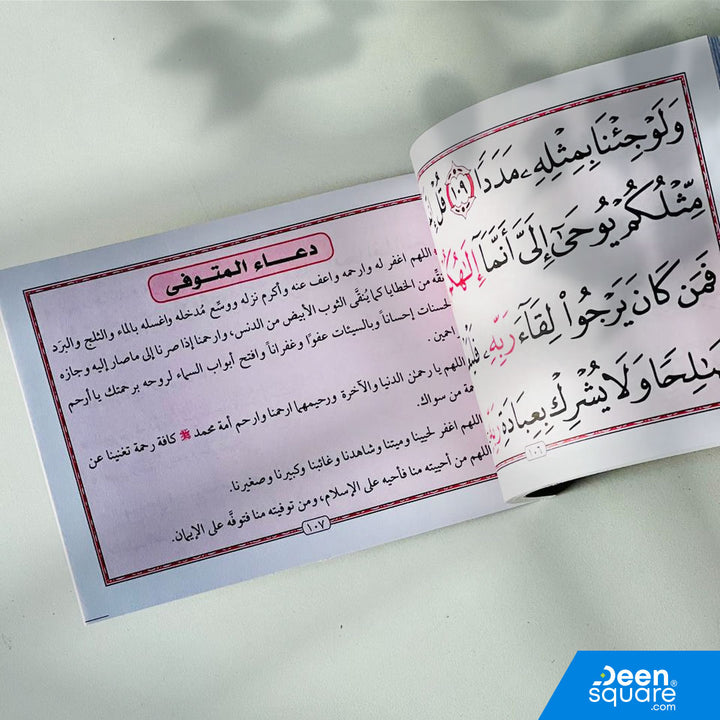 وَلَوْ جِئْنَا بِمِثْلِهِۦ مَدَدًا ١٠٩ قُلْ
مِّثْلُكُمْ يُوحَىٰٓ إِلَىَّ أَنَّمَآ إِلَٰهُكُمْ
فَمَن كَانَ يَرْجُوا۟ لِقَآءَ رَبِّهِۦ
صَٰلِحًا وَلَا يُشْرِكْ بِعِبَادَةِ
١٠٦
دعاء المتوفى
اللهم اغفر له وارحمه واعف عنه وأكرم نزله ووسّع مُدخله واغسله بالماء والثلج والبرَد
من الخطايا كما يُنقَّى الثوب الأبيض من الدنس، وارحمنا إذا صرنا إلى ماصار إليه وجازه
إحساناً وبالسيئات عفوًا وغفراناً وافتح أبواب السماء لروحه برحمتك يا أرحم
اللهم يا رحمٰن الدنيا والآخرة ورحيمهما ارحمنا وارحم أمة محمد ﷺ كافة رحمة تغنينا عن
من سواك.
اللهم اغفر لحيينا وميتنا وشاهدنا وغائبنا وكبيرنا وصغيرنا.
اللهم من أحييته منا فأحيه على الإسلام، ومن توفيته منا فتوفَّه على الإيمان.
١٠٧
Deen
square®
.com